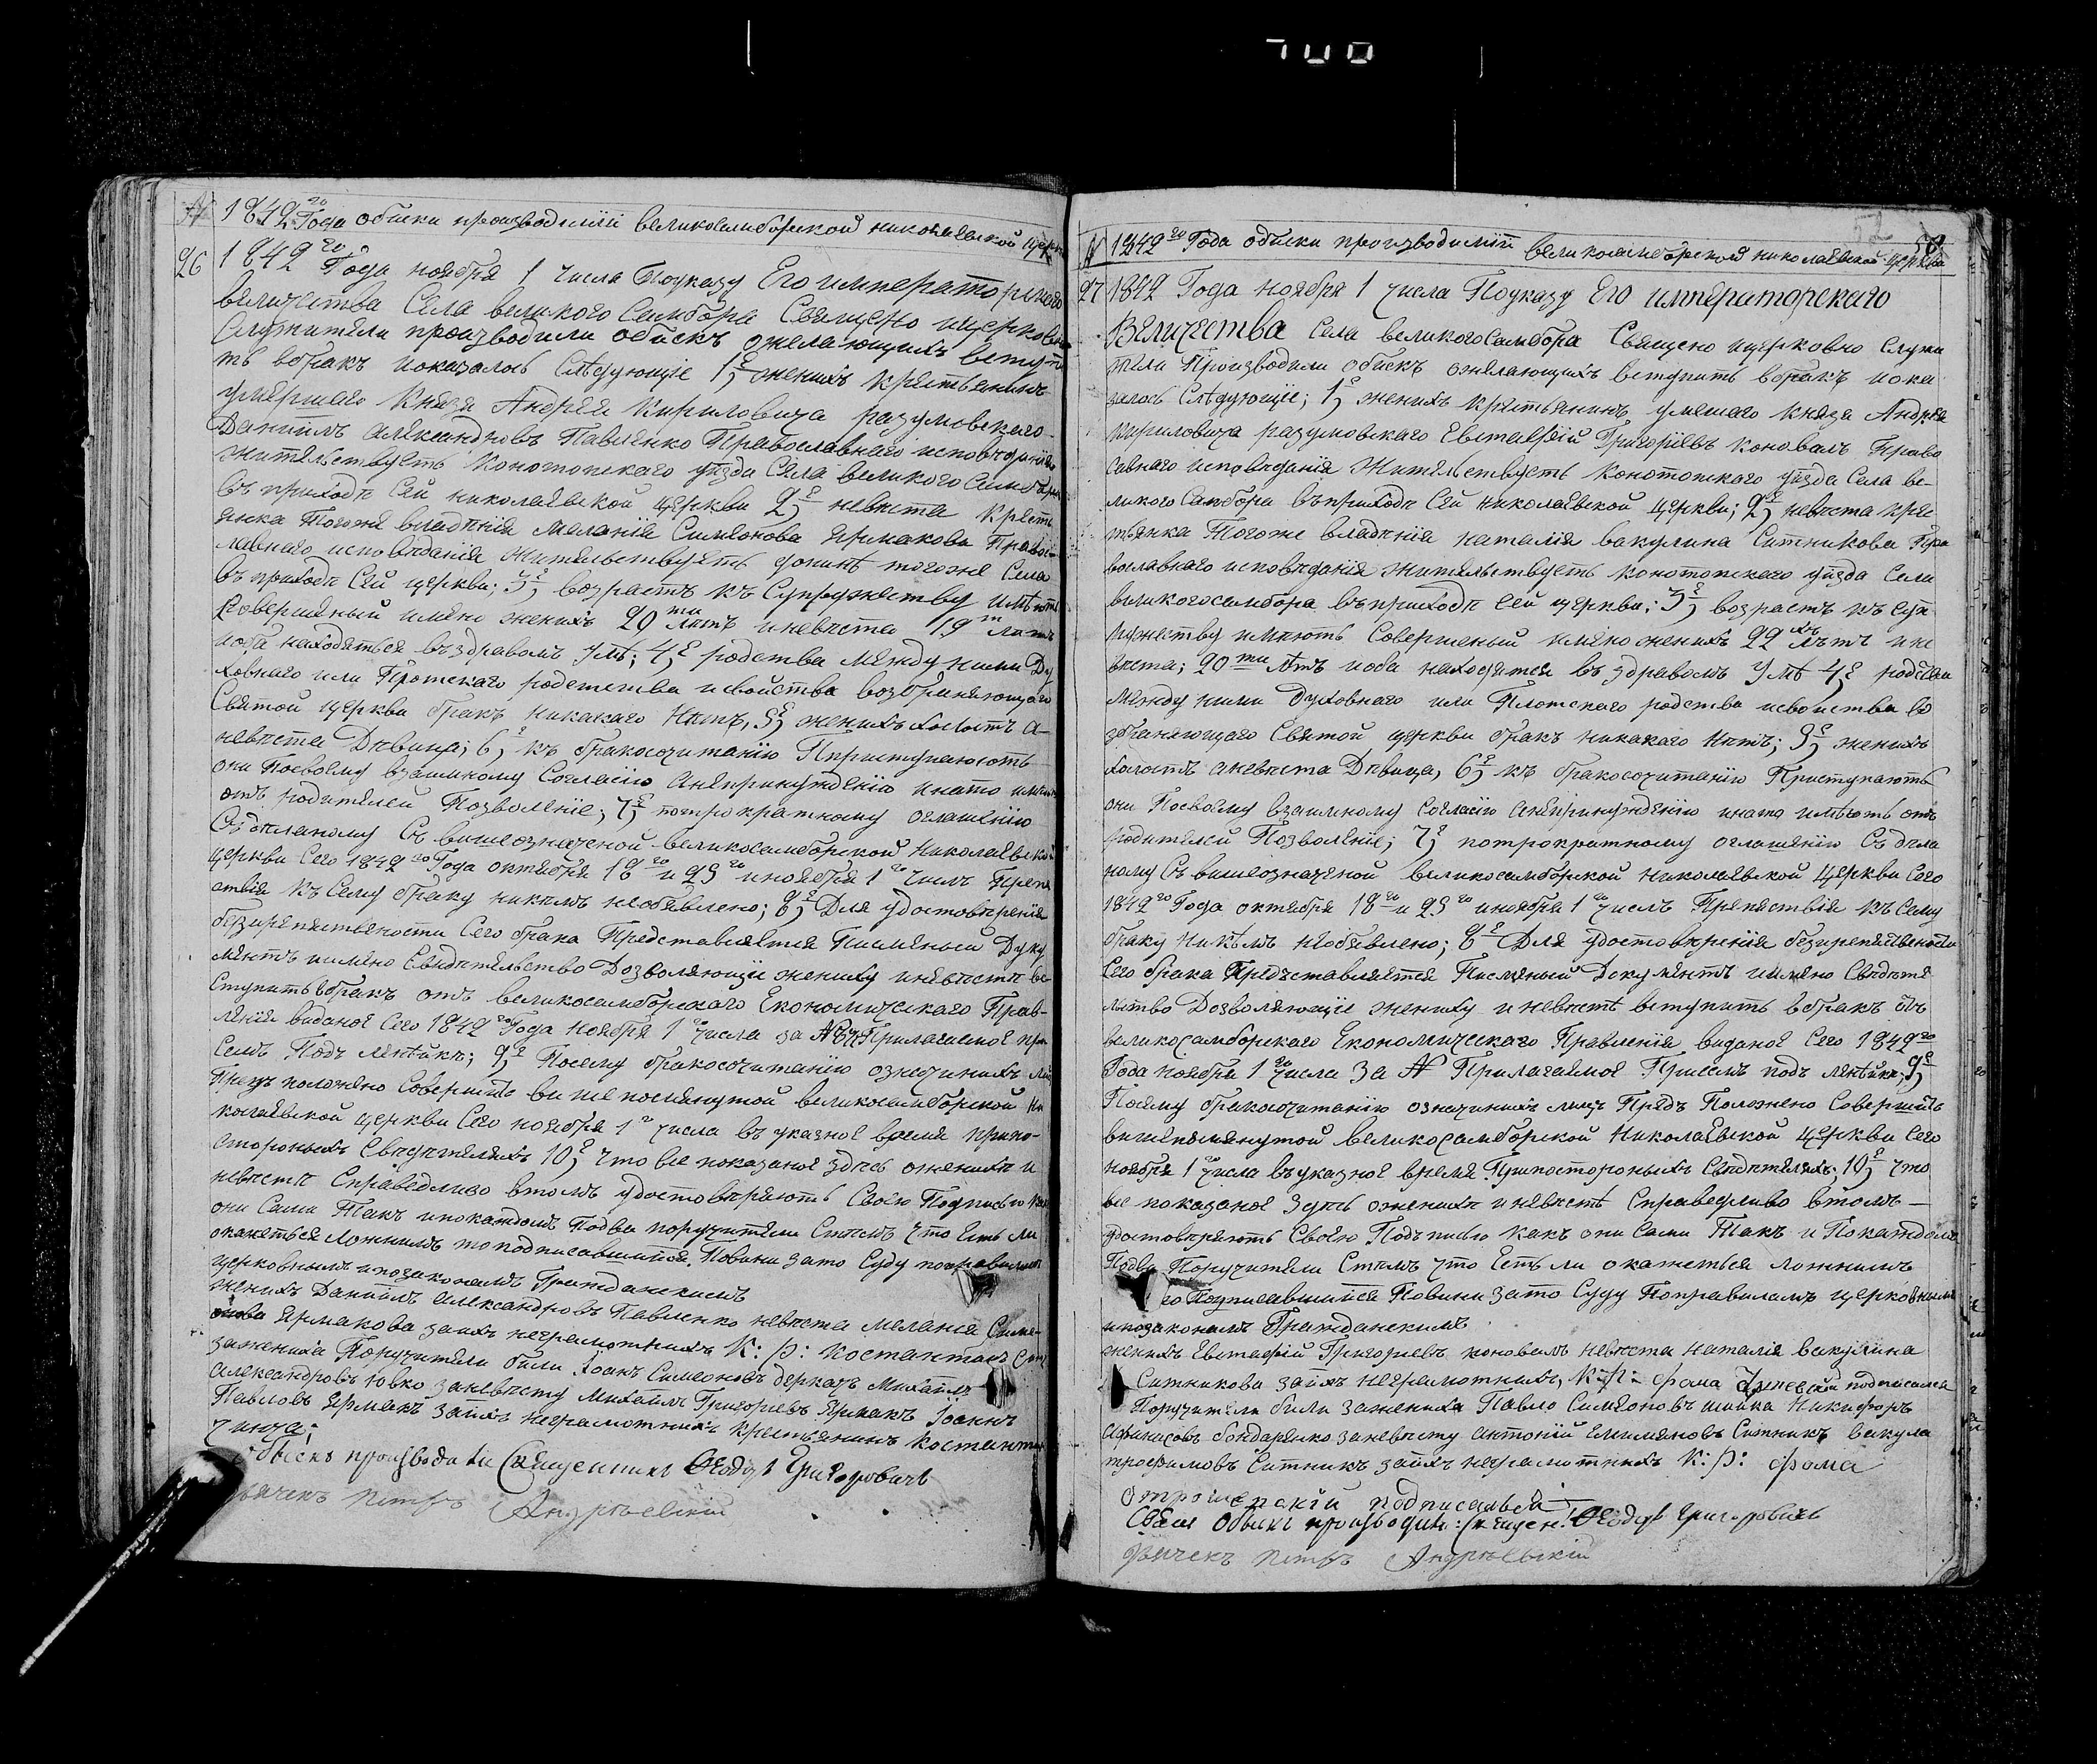 700
№ 1842го Года обиски производимiи великосамборской николаевской церкви
26 1842го Года ноября 1 числа Поуказу Его императорского
величества Села великого Самбора Священо ицерковно
Служители производили обискъ ожелающихъ вступи
ть вобракъ иоказалось Слѣдующiе 1е женихъ крестьянинъ
умершаго Князя Андрея Кириловича разумовскаго
Данiилъ александровъ Павленко Православнаго исповѣданiя
жительствуетъ конотопскаго уѣзда Села великого Самбора
въприходѣ Сей николаевской церкви 2е невѣста крестья
янка Тогоже владѣнiя Меланiя Симеонова Ярмакова Правос
лавнаго исповѣданiя жительствуетъ донинѣ тогоже Села
въприходѣ Сей церкви; 3е возрастъ къ Супружеству имѣютъ
Совершеный имено женихъ 20ти лѣтъ иневѣста 19т лѣтъ
иоба находяться въздравомъ умѣ; 4е родства между ними Ду
ховнаго или Плотскаго родства исвойства возбраняющаго
Святой церкви бракъ никакаго Нѣтъ, 5е женихъ холостъ а-
невѣста Дѣвица; 6е къ бракосочитанiю Приступаютъ
они Посвоему взаимному Согласiю анепринужденiю инато имѣютъ
отъ родителей Позволенiе; 7е потрократному оглашенiю
Сдѣланому Въ вишеозначеной великосамборской Николаевской
церкви Сего 1842го Года октября 18го и 25го иноября 1го Числъ Препя
ствiя къ Сему браку никемъ необявлено; 8е Для удостовѣренiя
безпрепятвености Сего брака Представляется Писменый Доку
ментъ иимено Свидѣтельство Дозволяющiе жениху иневѣстѣ вс
ступить вбракъ отъ великосамборскаго Економическаго Прав-
ленiя виданое Сего 1842го Года Ноября 1го числа за № Прилагаемое при
Семъ Подъ 9е Посему бракосочитанiю означинихъ лицъ
Предъ положено Совершить вишепомянутой великосамборской Ни
колаевской церкви Сего ноября 1го числа въ указное время припо-
стороннихъ Свидѣтеляхъ 10е что все показаное здѣсь оженихѣ и
невѣстѣ Справедливо втомъ удостовѣряютъ Своею Подписью какъ
они Сами Такъ ипокаждомъ Подва поручители Стѣмъ что Есть ли
окажеться Ложнимъ топодписавшиися Повини зато Суду поправиламъ
церковнымъ ипозаконамъ Гражданскимъ
женихъ Данiилъ александровъ Павленко невѣста меланiя Симе-
онова Ярмакова заихъ неграмотнихъ К: р: костантинъ
зажениха Поручители били Iоанъ Симеоновъ деркачъ Михаилъ
александровъ Ювко заневѣсту михаилъ Григорiевъ Ярмакъ Iоаннъ
Павловъ Ярмакъ заихъ неграмотнихъ крестьянинъ костантинъ

обыскъ производили Священникъ Ѳеодоръ Григоровичъ
дьячекъ Петръ Андрѣевскiй
52
№ 1842го Года обиски производимiи великосамборской николаевской церкви
27 1842 Года ноября 1 числа Поуказу Его императорскаго
Величества Села великогоСамбора Священо ицерковно Служи
тели Производили обискъ ожелающихъ вступить вбракъ иока
залось Слѣдующiе; 1е женихъ крестьянинъ умешаго князя Андрея
кириловича разумовскаго Евстафiй Григорiевъ коновалъ Право
славнаго исповѣданiя Жительствуетъ конотопскаго уѣзда Села ве-
ликого Самбора въприходѣ Сей николаевской церкви; 2е невѣста крес
тьянка Тогоже владѣнiя наталiя вакулина Ситникова Пра
вославнаго исповѣданiя жительствуетъ конотопскаго уѣзда Села
великогосамбора въприходѣ сей церкви; 3е возрастъ къ Супр
ужеству имѣютъ Совершеный имено женихъ 22хъ лѣтъ ине
вѣста; 20ти лѣтъ иоба находятся въ здравомъ Умѣ 4е родства
Между ними Духовнаго или Плотскаго родства исвоиства во
збраняющаго Святой церкви бракъ никакаго Нѣтъ; 5е женихъ
холостъ аневѣста Дѣвица, 6е къ бракосочитанiю Приступаютъ
они Посвоему взаимному согласiю анепринужденiю инато имѣютъ отъ
родителей Позволенiе; 7е потрократному оглашенiю Сдѣла
ному Въ вишеозначеной великосамборской николаевской церкви Сего
1842го Года октября 18го и 25го иноября 1го числъ Препяствiя къ Сему
браку Никѣмъ необявлено; 8е Для удостовѣренiя безпрепятствености
Сего брака Предъставляется Писменый Документъ иимено Свидѣте
льство Дозволяющiе жениху иневѣстѣ вступить вбракъ отъ
великосамборскаго Економическаго Правленiя виданое Сего 1842го
Года ноября 1го числа За № Прилагаемое Присемъ подъ 9е
Посему бракосочитанiю означинихъ лицъ Предъ Положено Совершить
вишепомянутой великосамборской Николаевской церкви Сего
ноября 1го числа вуказное время Припосторонихъ Свидѣтеляхъ; 10е что
все показаное Здѣсь оженихѣ иневѣстѣ Справедливо втомъ —
удостовѣряютъ Своею Подъписью какъ они Сами Такъ и Покаждомъ
Подва Поручители Стѣмъ что Есть ли окажеться ложнимъ
то Подписавшиися Повини зато Суду Поправиламъ церковнымъ
ипозаконамъ Гражданскимъ.
женихъ Евстафiй Григорiевъ коновалъ невѣста наталiя вакулина
Ситникова заихъ неграмотнихъ, К: р: фома подписался
Поручители били зажениха Павло Симеоновъ шийка Никифоръ
афанасовъ бондаренко заневѣсту антонiй Емилiяновъ Ситникъ вакула
трофимовъ Ситникъ заихъ неграмотнихъ К: р: фома
подписался
Сей Обыскъ производили: Священ: Ѳеодоръ Григоровичъ
дьячекъ Петръ Андрѣевскiй